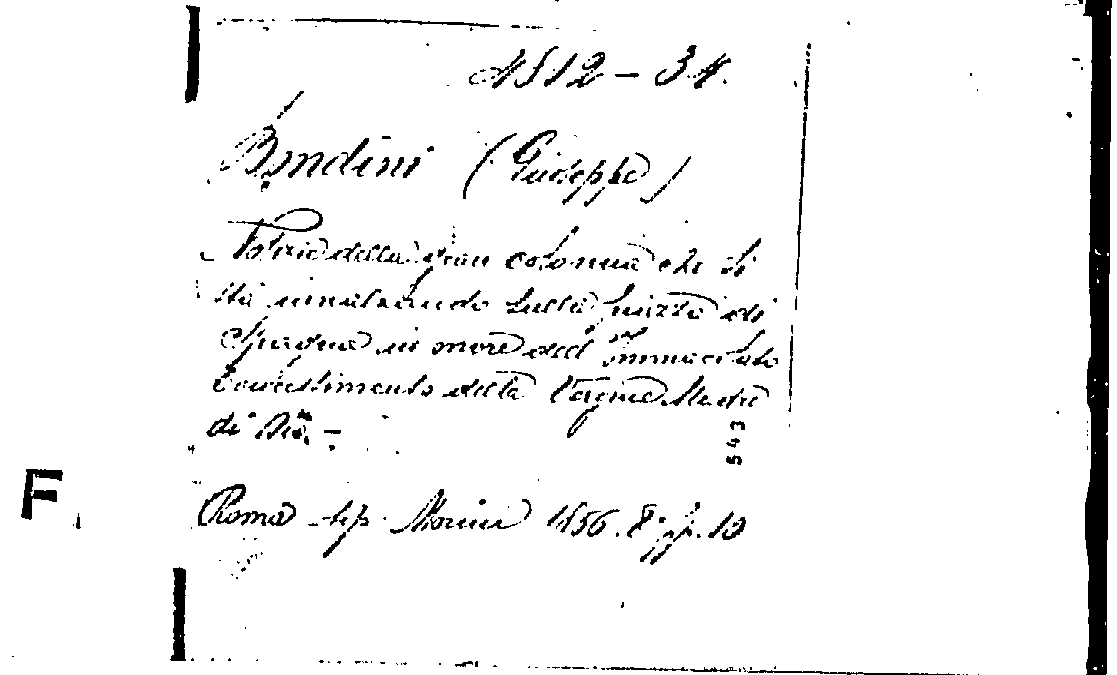 1512-34.
Bondini (Giuseppe)
Notizie della gran colonna che si
sta innalzando sulla piazza di
Spagna in onore dell' Immacolato
Concepimento della Vergine Madre
di Dio. -
543
Roma tip. Morini 1856. 8. pp. 10
F.